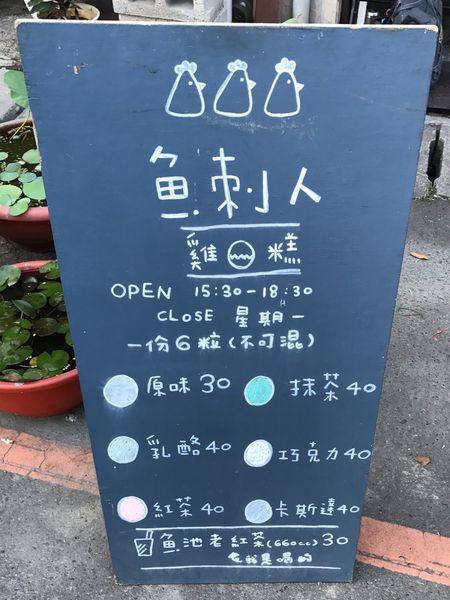 魚刺人
雞 糕
OPEN 15:30-18:30
CLOSE 星期一
一份6粒(不可混)
原味30 抹茶40
乳酪40 巧克力40
紅茶40 卡斯達40
魚池老紅茶(660cc)30
我是喝的